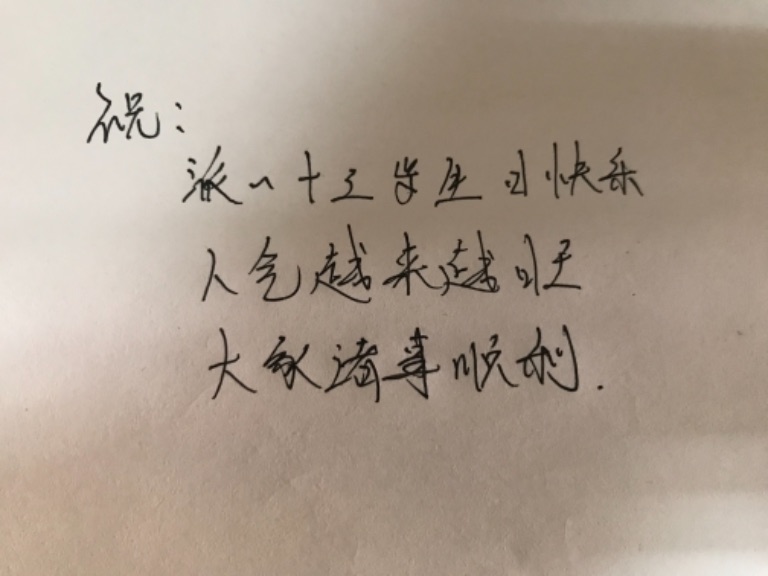 祝：
派派十三岁生日快乐
人气越来越旺
大家诸事顺利.